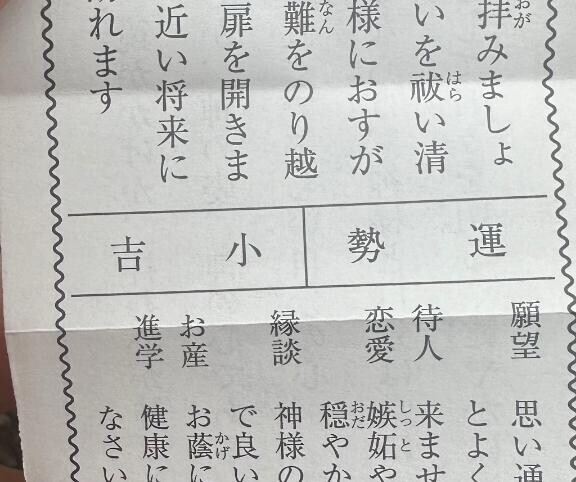 拝みましょ
いを祓い清
様におすが
難をのり越
扉を開きま
近い将来に
れます
運勢
小吉
願望
思い通
とよく
待人
来ませ
恋愛
嫉妬や
穏やか
縁談
神様の
で良い
お産
お蔭に
進学
健康に
なさい